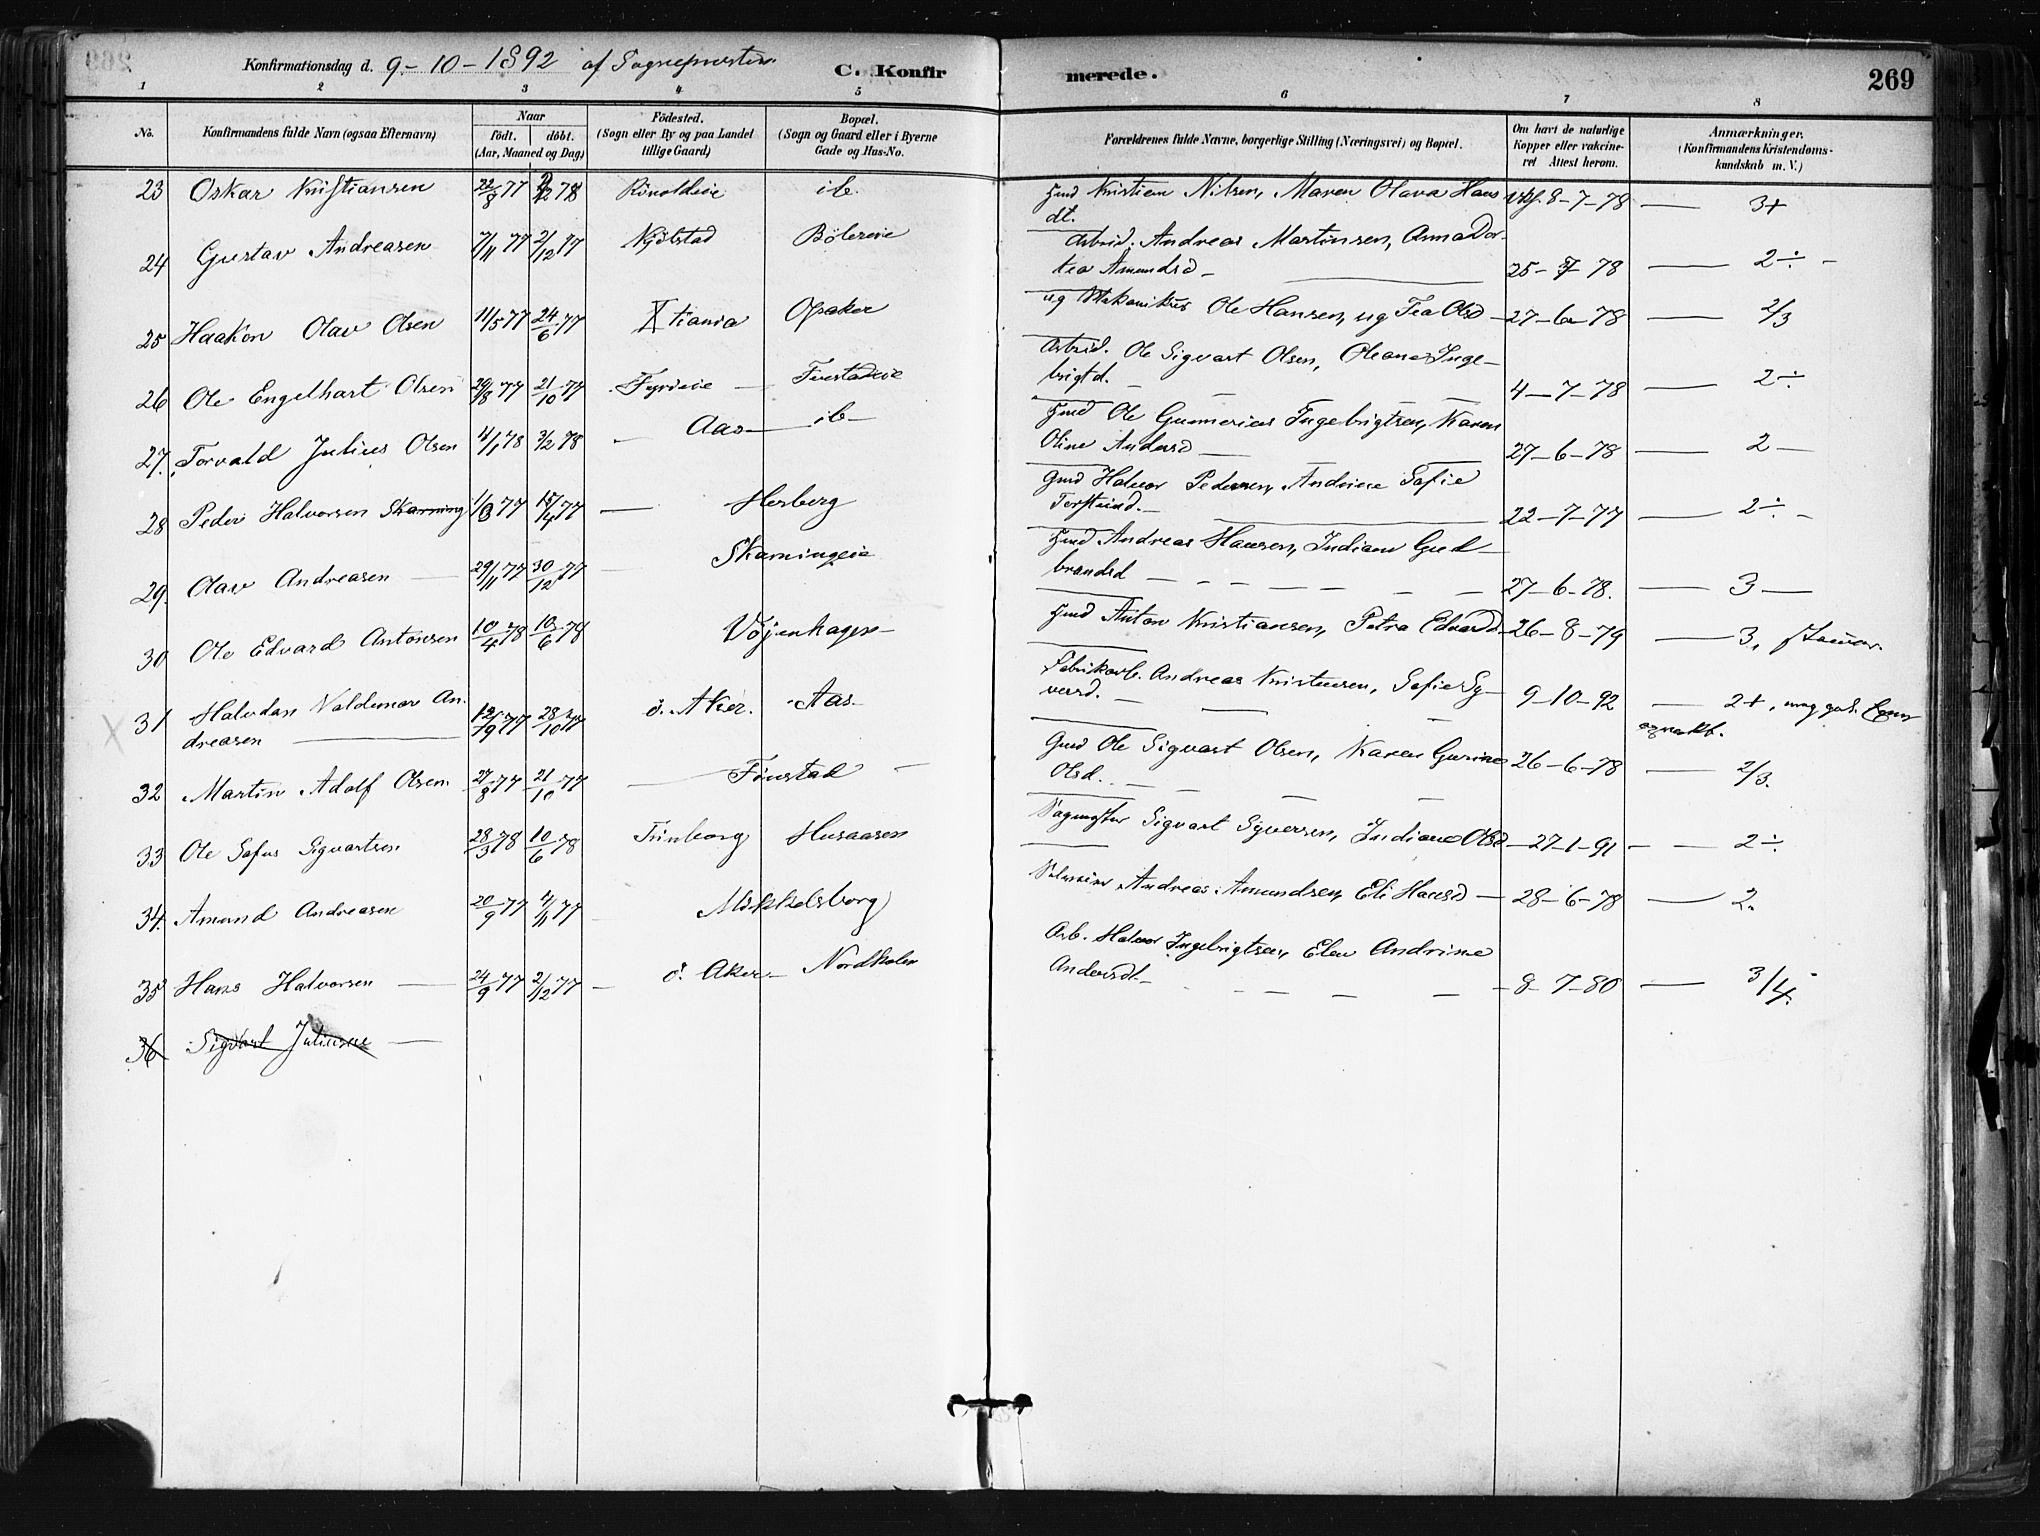 Konfirmationsdag d. 9-10-1892 af Sognepresten. C. Konfirmerede. 269
1 2 3 4 5 6 7 8
No. Konfirmandens fulde Navn (ogsaa Efternavn) Naar födt. döbt. (Aar, Maaned og Dag) Födested. (Sogn eller By og paa Landet tillige Gaard) Bopæl. (Sogn og Gaard eller i Byerne Gade og Hus-No. Forældrenes fulde Navne, borgerlige Stilling (Næringsvei) og Bopæl. Om havt de naturlige Kopper eller vakcineret Attest herom. Anmærkninger. (Konfirmandens Kristendomskundskab m. V.)
23 Oskar Kristiansen 22/8 77 2/12 78 ib. Hmd Kristian Nilsen, Maren Olava Hansdt. 8-7-78 — 3+
24 Gustav Andreasen 7/11 77 2/12 77 Nÿbstad Bölereie Arbeid. Andreas Martinsen, Anna Dortea Amundsd — 25- 78 — 2÷ -
25 Haakon Olav Olsen 11/5 77 24/6 77 Xtiania Opaker ug Mekanikus Ole Hansen, ug Tea Olsd — 27-6-78 — 2/3
26 Ole Engelhart Olsen 29/8 77 21/10 77 — Arbeid. Ole Sigvart Olsen, Oleane Ingebrigtd. — 4-7-78 — 2÷
27. Torvald Julius Olsen 4/1 78 3/2 78 — Aas — ib — Hmd Ole Gunnerius Ingebrigtsen, Karen Oline Andersd — 27-6-78 — 2 —
28 Peder Halvorsen Skarning 1/3 77 15/4 77 — Herberg Gmd Halvor Pedersen, Andrine Sofie Torsteind. — 22-7-77 — 2÷ -
29. Olav Andreasen — 29/11 77 30/12 77 — Skarningeie Hmd Andreas Hansen, Indiane Gudbrandsd — 27-6-78. — 3 —
30 Ole Edvard Antonsen 10/4 78 10/6 78 Vöjenhagen — Hmd Anton Kristiansen, Petra Edvardsd — 26-8-79 — 3,
31 Halvdan Valdemar Andreasen — 12/9 77 28/10 77 ö. Aker. Aas — Fabrikarb. Andreas Kristensen, Sofie Syversd. — 9-10-92 — 2+, meg god.
32 Martin Adolf Olsen 27/8 77 21/10 77 — Finstad — Gmd Ole Sigvart Olsen, Karen Gurine Olsd. — 26-6-78 — 2/3.
33 Ole Sofus Sigvartsen 28/3 78 10/6 78 Finborg Husaasen Sigvart Syversen, Indiane Olsd — 27-1-91 — 2÷
34. Amund Andreasen 20/9 77 4/11 77 — Mikkelsborg Andreas Amundsen, Eli Hansd — 28-6-78 — 2.
35 Hans Halvorsen — 24/9 77 2/12 77 — ö. Aker — Nordkolen Arb. Halvor Ingebrigtsen, Elen Andrine Andersdt — 8-7-80 — 3/4.
36 Sigvart Juliusen —